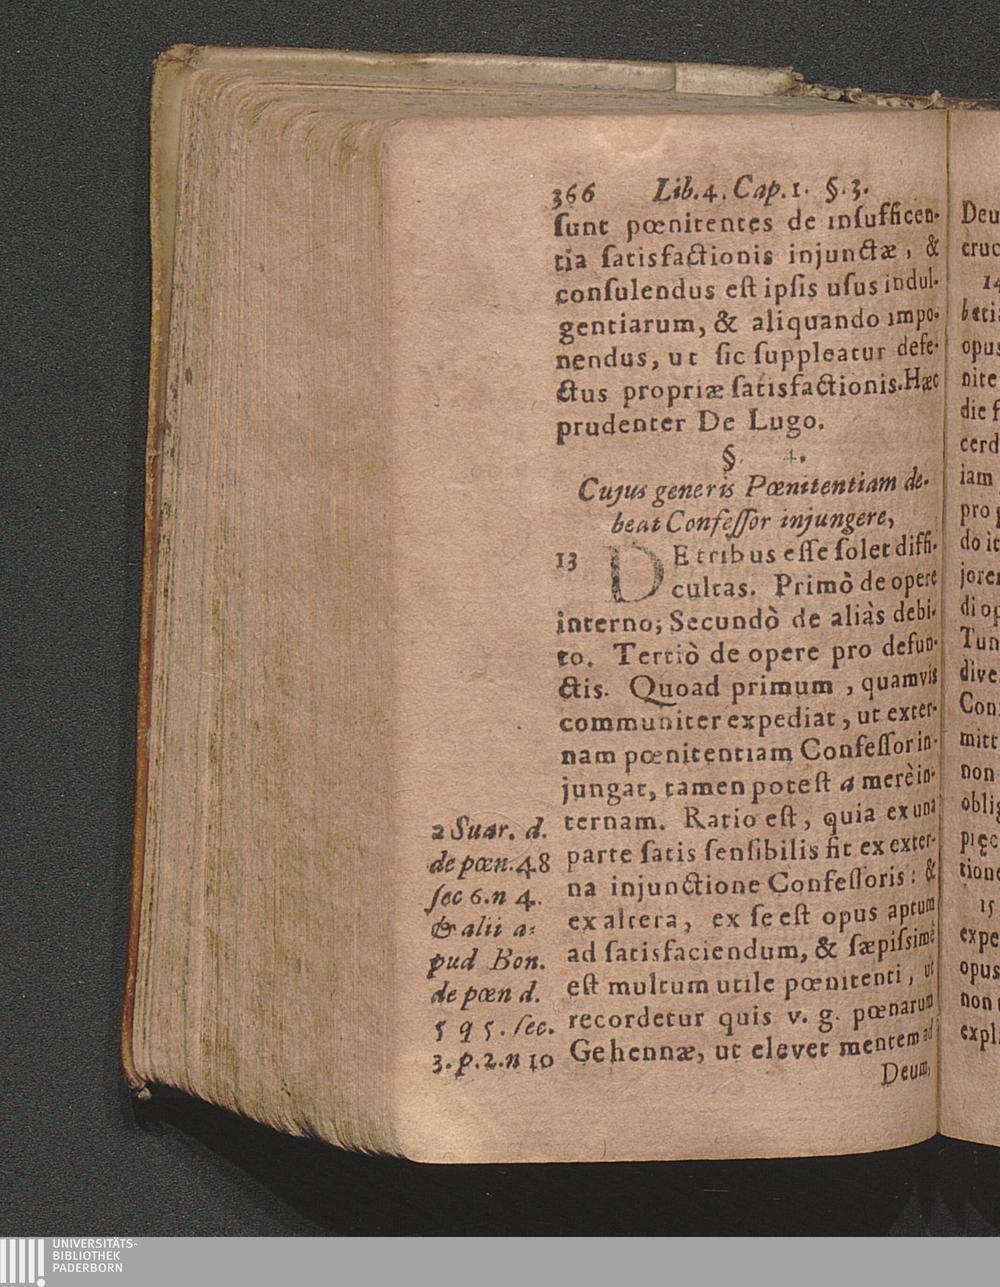 366 Lib.4. Cap.1. §.3.
ſunt pœnitentes de inſufficen-
tia ſatisfactionis injunctæ, &
conſulendus eſt ipſis uſus indul-
gentiarum, & aliquando impo-
nendus, ut ſic ſuppleatur defe-
ctus propriæ ſatisfactionis.Hæc
prudenter De Lugo.
§ 4.
Cujus generis Pœnitentiam de-
beat Confeſſor injungere,
13 DE tribus eſſe ſolet diffi-
cultas. Primò de opere
interno; Secundò de aliàs debi-
to. Tertiò de opere pro defun-
ctis. Quoad primum, quamvis
communiter expediat, ut exter-
nam pœnitentiam Confeſſor in-
jungat, tamen poteſt a merè in-
ternam. Ratio eſt, quia ex una
parte ſatis ſenſibilis fit ex exter-
na injunctione Confeſſoris: &
ex altera, ex ſe eſt opus aptum
ad ſatisfaciendum, & ſæpiſsimè
eſt multum utile pœnitenti, ut
recordetur quis v. g. pœnarum
Gehennæ, ut elevet mentem ad
Deum,
a Suar. d.
de pœn.48
ſec 6.n 4.
& alii a-
pud Bon.
de pœn d.
5 q 5. ſec.
3.p.2.n 10
Deu
cruc
14
opus
nite
die f
cerd
iam
pro
do it
jorem
di op
Tun
dive
Con
mitt
non
oblig
tione
15
expe
opus
non
expl
UNIVERSITÄTS-
BIBLIOTHEK
PADERBORN